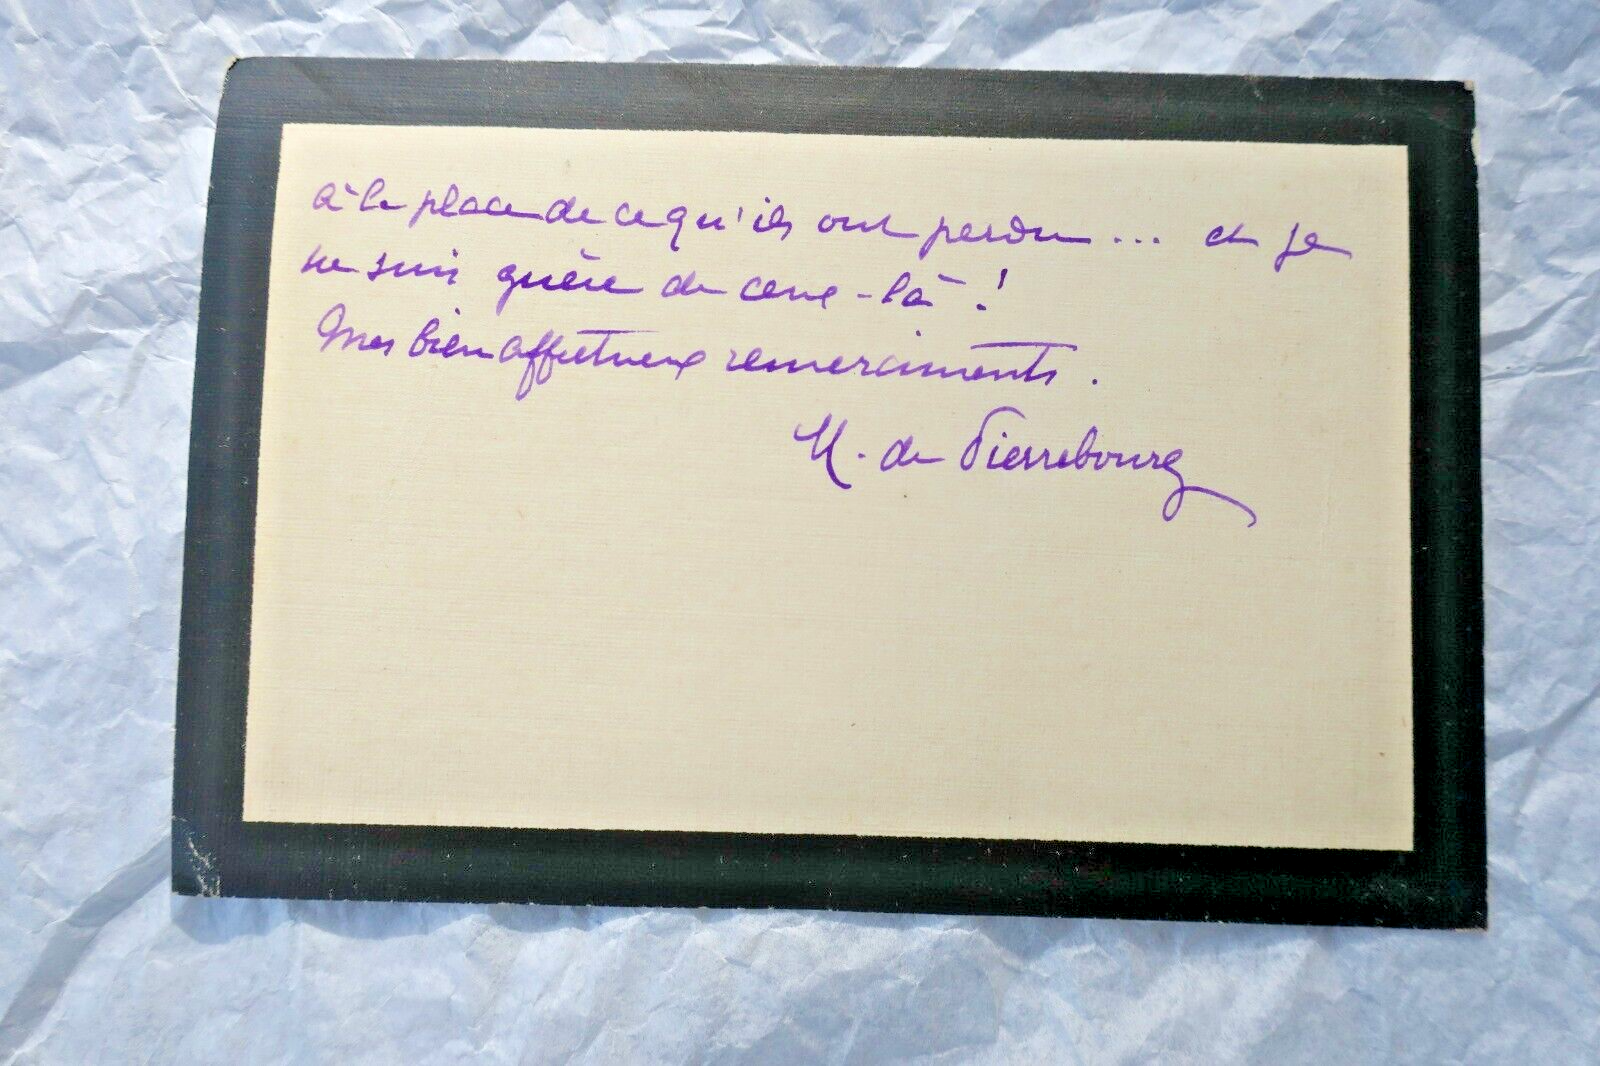 à la place de ce qu'ils ont perdu ... et je
ne suis guère de ceux-là !
Mes bien affectueux remerciments.
M. de Pierrebourg